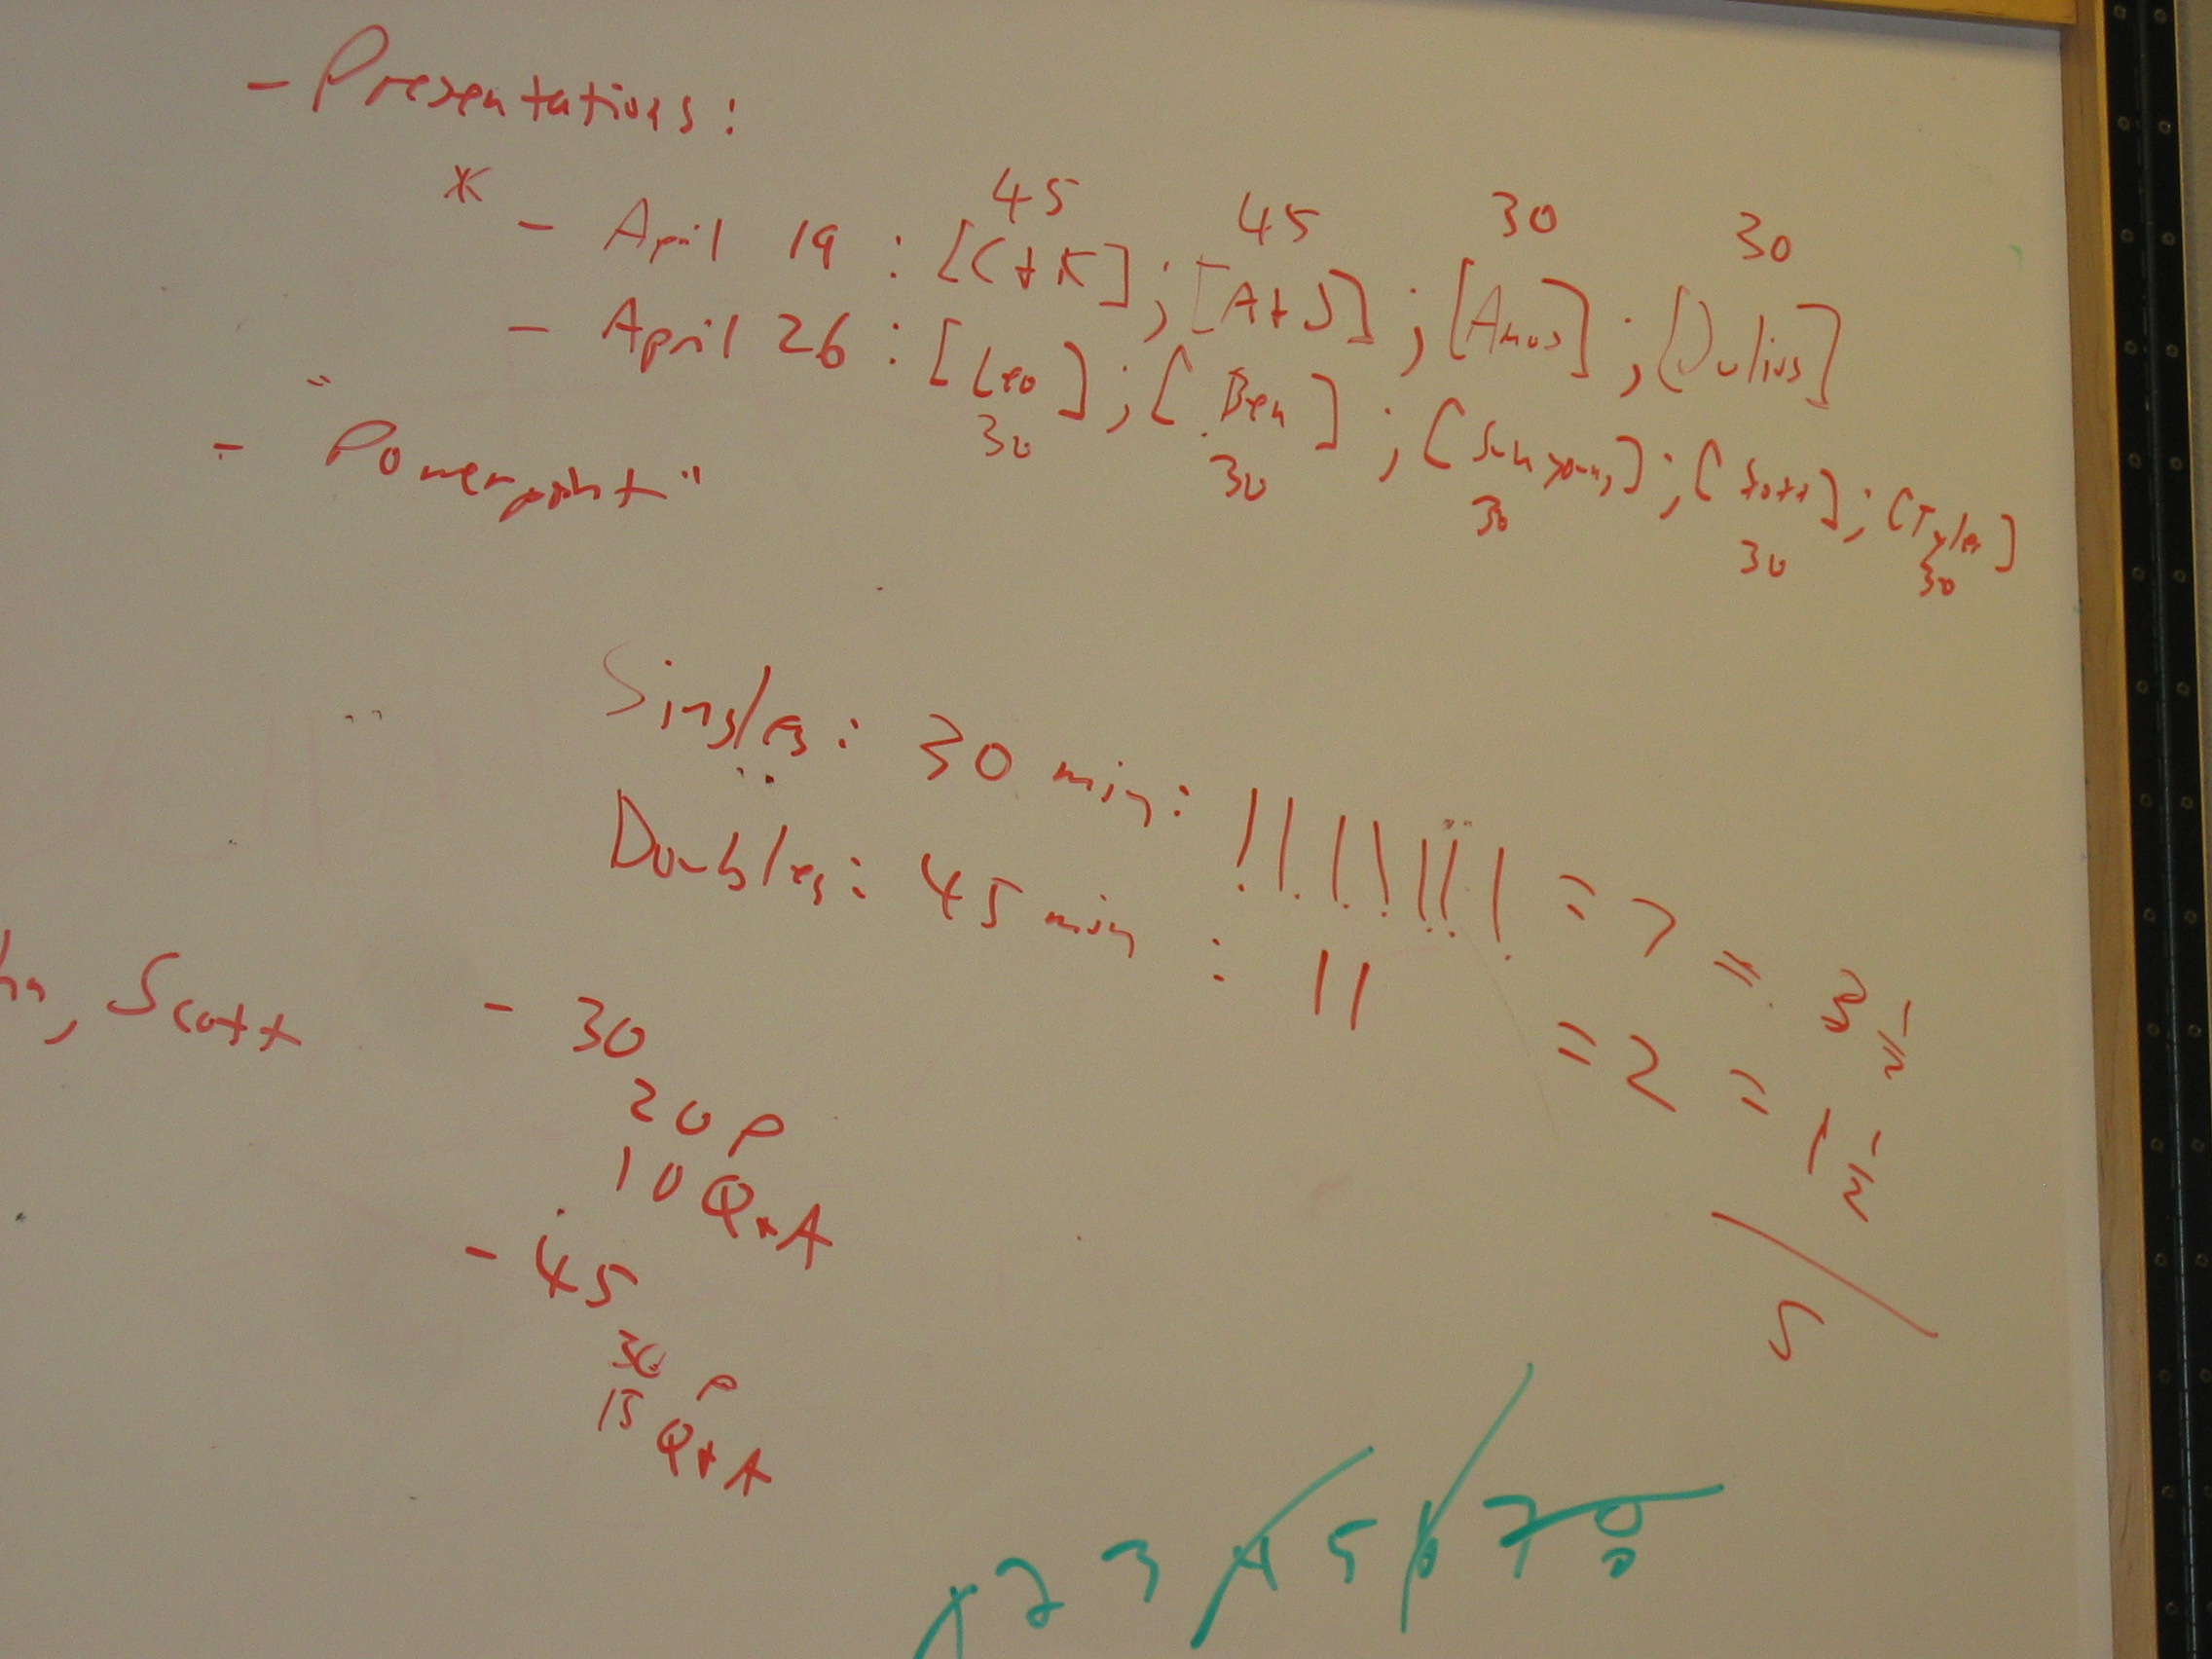 - Presentations:
45 45 30 30
* - April 19 : [C+K] ; [A+J] ; [Amos] ; [Julius]
- April 26 : [Leo] ; [Ben] ; [Sunyoung] ; [Scott] ; [Tyler]
30 30 30 30 30
- Powerpoint"
Singles: 30 min: = 7 = 3 1/2
Doubles: 45 min : 11 = 2 = 1 1/2
5
, Scott
- 30
20 P
10 Q+A
- 45
30 P
15 Q+A
1 2 3 4 5 6 7 8